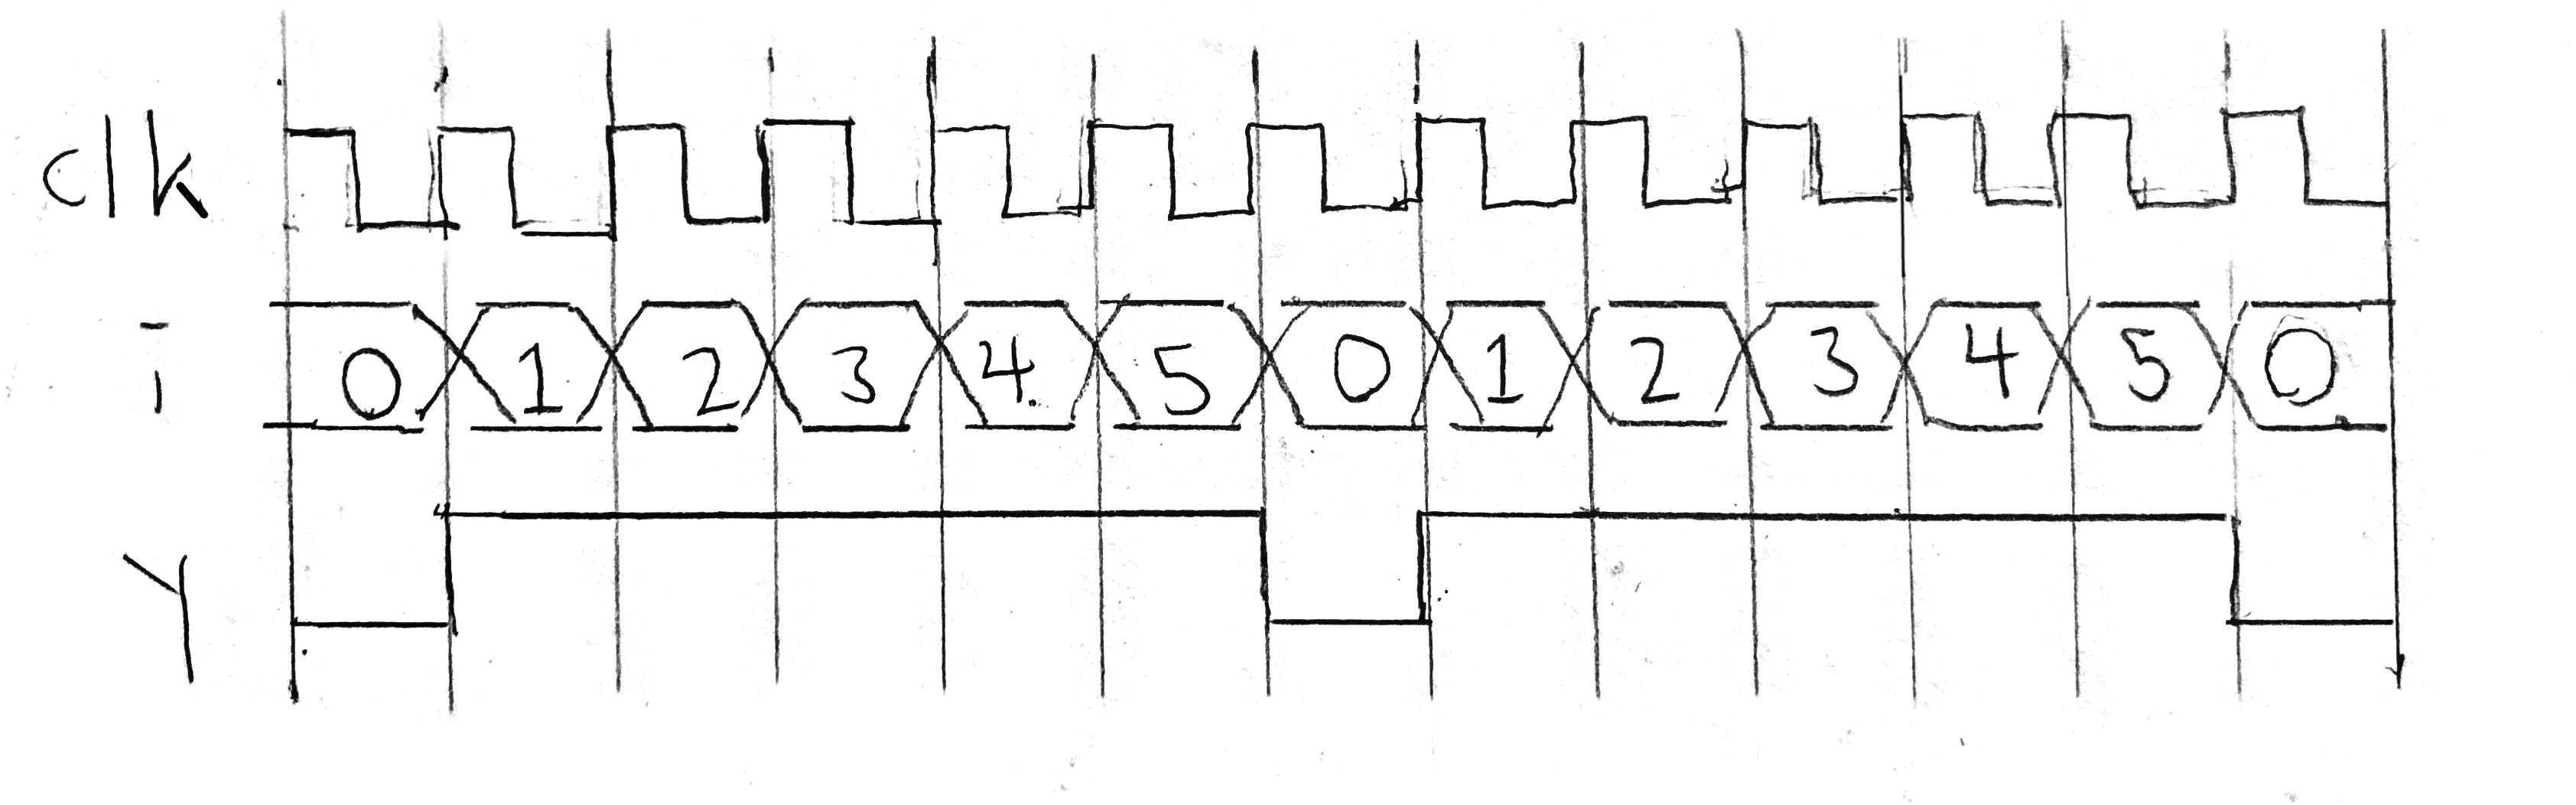 clk
i 0 1 2 3 4 5 0 1 2 3 4 5 0
Y